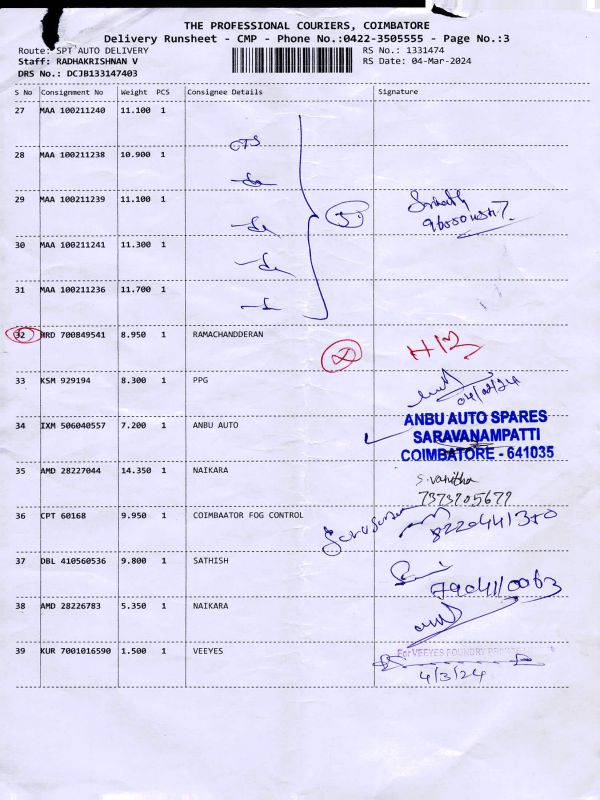 THE PROFESSIONAL COURIERS, COIMBATORE
Delivery Runsheet - CMP - Phone No.:0422-3505555 - Page No.:3
Route: SPT AUTO DELIVERY RS No.: 1331474
Staff: RADHAKRISHNAN V RS Date: 04-Mar-2024
DRS No.: DCJB133147403
S No Consignment No Weight PCS Consignee Details Signature
27 MAA 100211240 11.100 1
CTS
28 MAA 100211238 10.900 1
29 MAA 100211239 11.100 1
30 MAA 100211241 11.300 1
31 MAA 100211236 11.700 1
32 HRD 700849541 8.950 1 RAMACHANDDERAN
33 KSM 929194 8.300 1 PPG
04/02/24
34 IXM 506040557 7.200 1 ANBU AUTO
ANBU AUTO SPARES
SARAVANAMPATTI
COIMBATORE - 641035
35 AMD 28227044 14.350 1 NAIKARA
S. Vanitha
7373705677
36 CPT 60168 9.950 1 COIMBAATOR FOG CONTROL
37 DBL 410560536 9.800 1 SATHISH
38 AMD 28226783 5.350 1 NAIKARA
39 KUR 7001016590 1.500 1 VEEYES
For VEEYES FOUNDRY
4/3/24